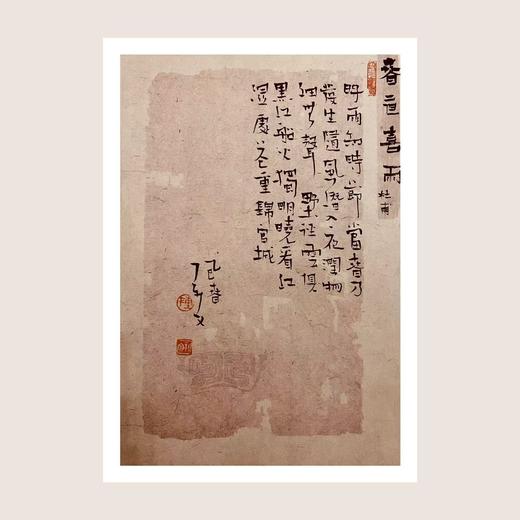 春夜喜雨
杜甫
好雨知時節當春乃
發生隨風潛入夜潤物
細無聲野徑雲俱
黑江船火獨明曉看紅
濕處花重錦官城
春